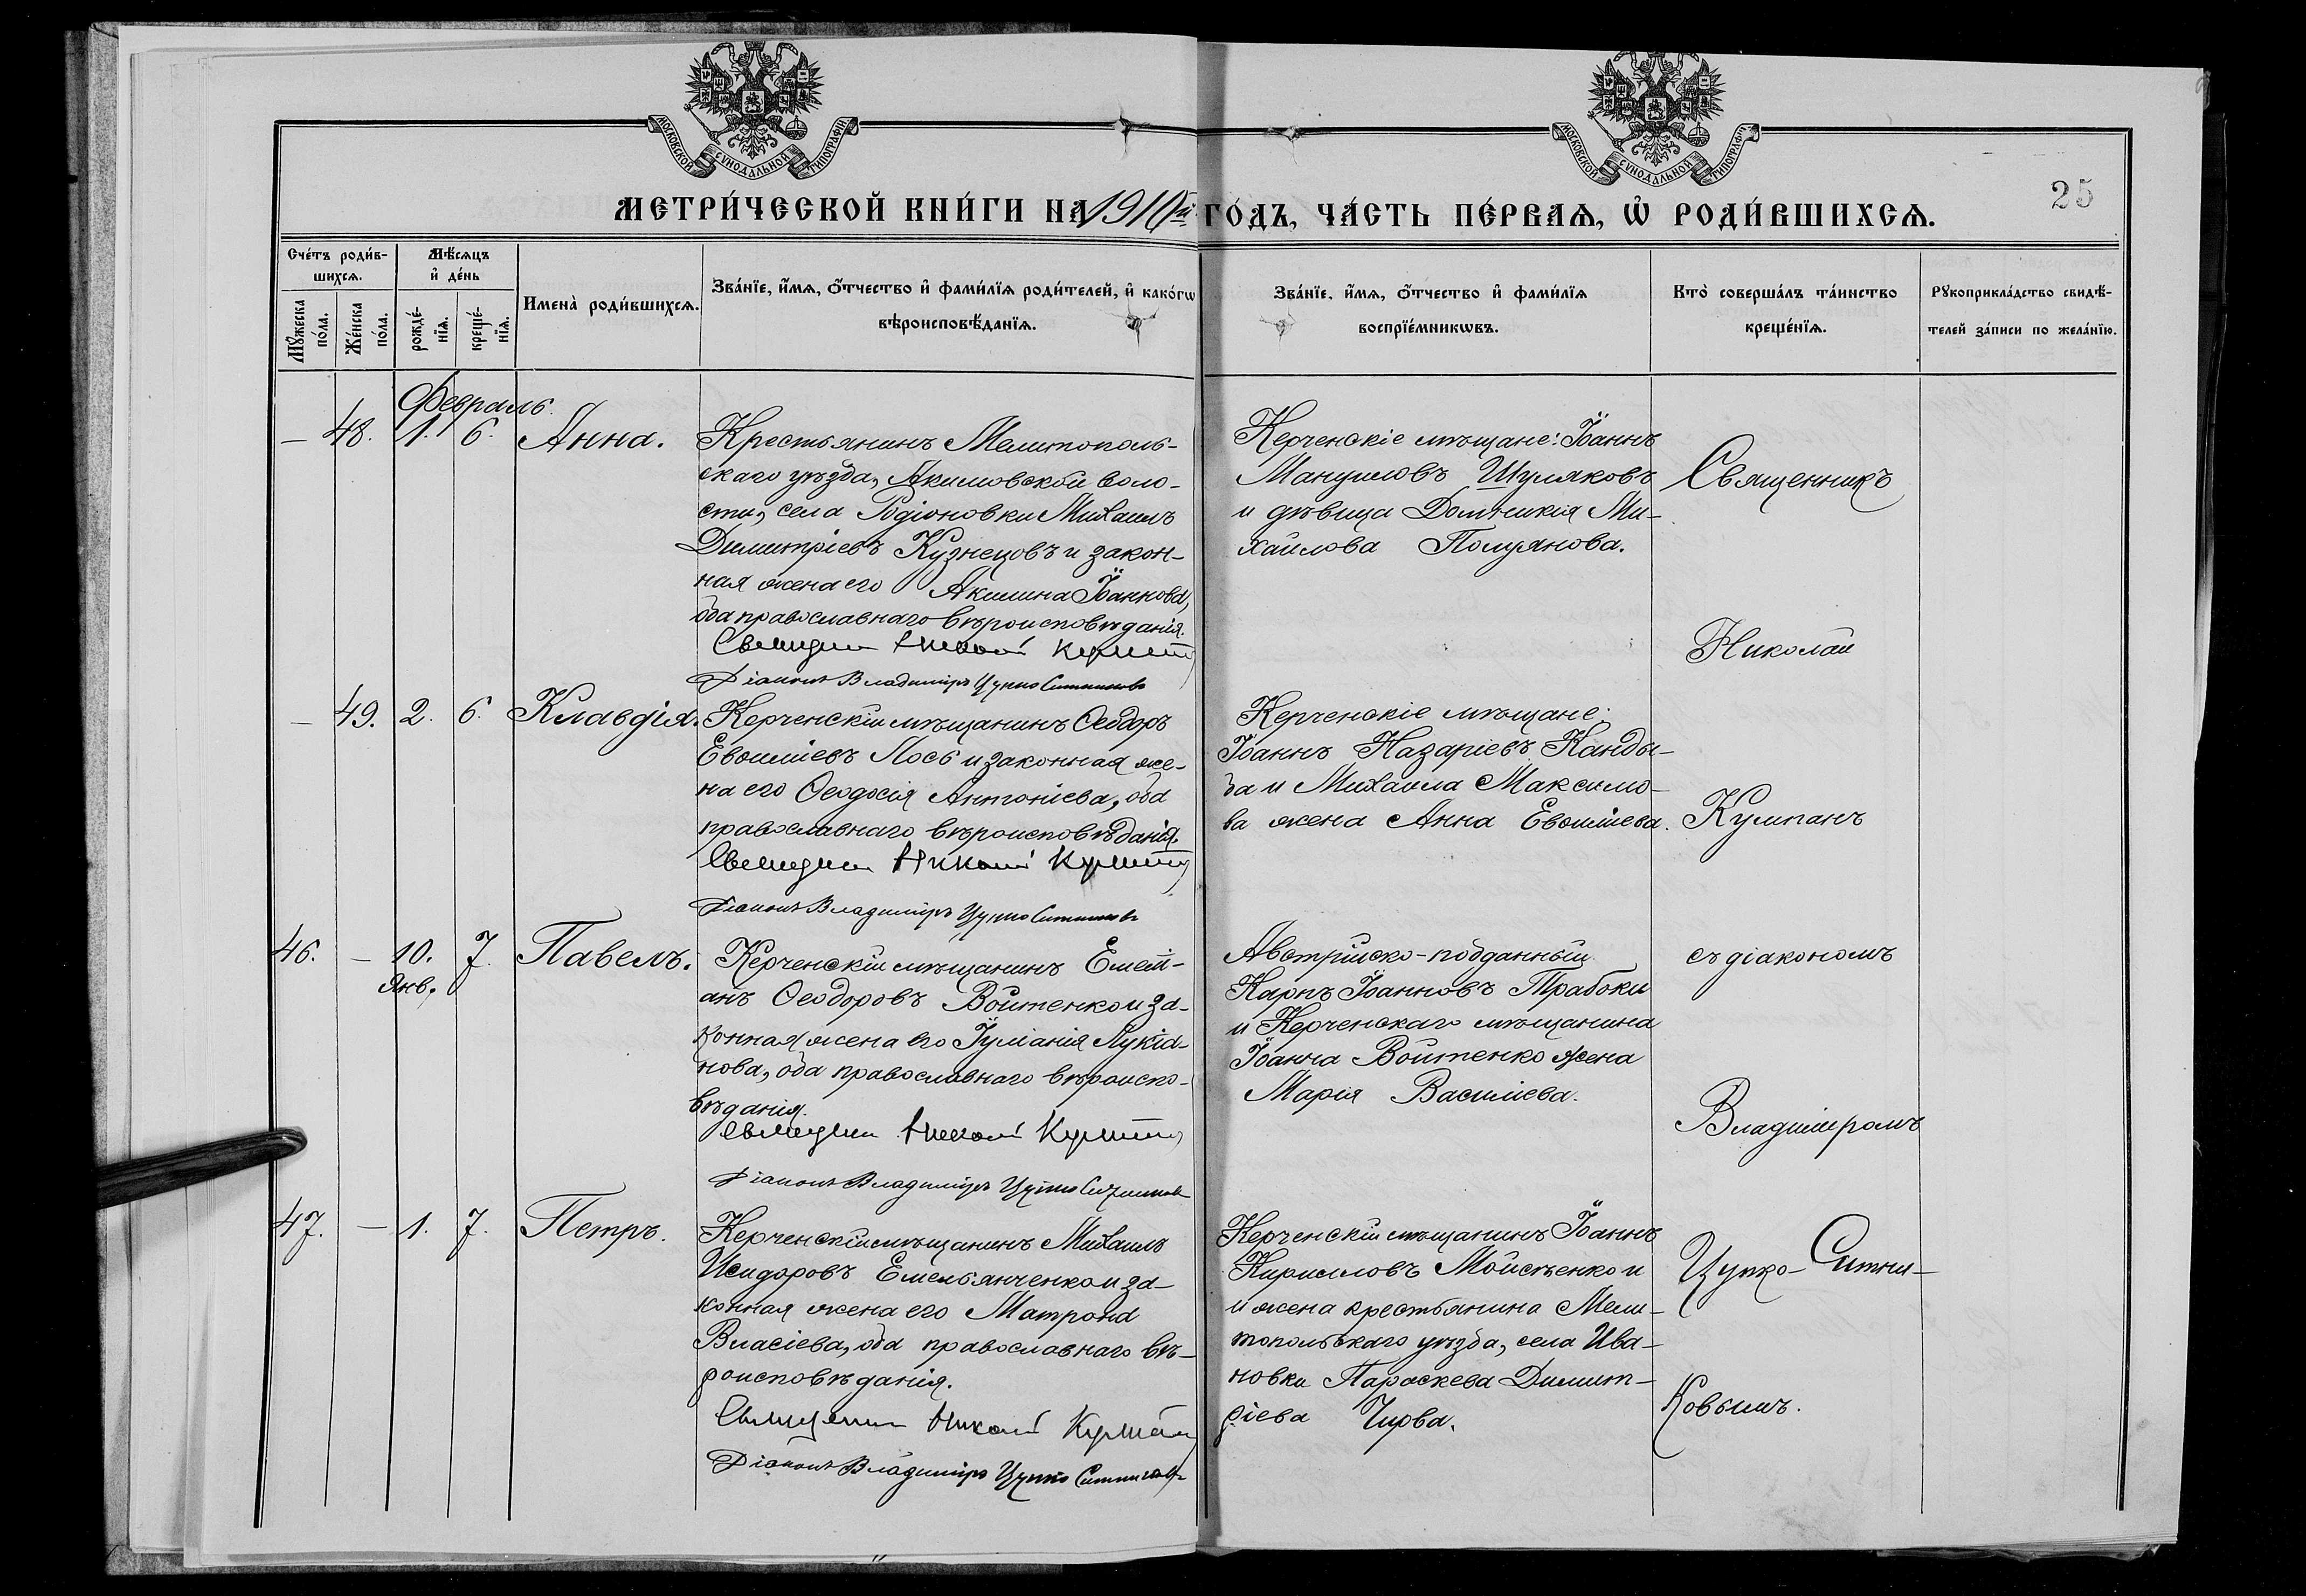 МОСКОВСКОЙ СѴНОДАЛЬНОЙ ТИПОГРАФІИ
МОСКОВСКОЙ СѴНОДАЛЬНОЙ ТИПОГРАФІИ
25
МЕТРИ́ЧЕСКОЙ КНИ́ГИ НА 1910й ГО́ДЪ, ЧА́СТЬ ПЕ́РВАѦ, Ѡ҆ РОДИ́ВШИХСѦ.
Сче́тъ роди́в-
шихсѧ.
Мѣ́сѧцъ
и҆ де́нь
Имена̀ роди́вшихсѧ.
Зва́нїе, и҆́мѧ, ѻ҆́тчество и҆ фами́лїѧ роди́телей, и҆ како́гѡ
вѣроисповѣ́данїѧ.
Зва́нїе, и҆́мѧ, ѻ҆́тчество и҆ фами́лїѧ
воспрїе́мникѡвъ.
Кто̀ соверша́лъ та́инство
креще́нїѧ.
Рꙋкоприкла́дство свидѣ́-
телей за́писи по жела́нїю.
Мꙋ́жеска
по́ла.
Же́нска
по́ла.
рожде́-
нїѧ.
креще́-
нїѧ.
Февраль.
— 48. 1. 6. Анна.
Крестьянинъ Мелитополь-
скаго уѣзда, Акимовской воло-
сти, села Родіоновки Михаилъ
Димитріевъ Кузнецовъ и закон-
ная жена его Акилина Іоаннова,
оба православнаго вѣроисповѣданія.
Священникъ Николай Кумпанъ
Діаконъ Владиміръ Цупко Ситниковъ
Керченскіе мѣщане: Іоаннъ
Мануиловъ Шуляковъ
и дѣвица Домникія Ми-
хаилова Полуянова.
Священникъ
Николай
— 49. 2. 6. Клавдія.
Керченскій мѣщанинъ Ѳеодоръ
Евѳиміевъ Лось и законная же-
на его Ѳеодосія Антоніева, оба
православнаго вѣроисповѣданія.
Священникъ Николай Кумпанъ
Діаконъ Владиміръ Цупко Ситниковъ
Керченскіе мѣщане:
Іоаннъ Назаріевъ Канды-
ба и Михаила Максимо-
ва жена Анна Евѳиміева.
Кумпанъ
46. — 10. 7. Павелъ.
Янв.
Керченскій мѣщанинъ Емелі-
анъ Ѳеодоровъ Войтенко и за-
конная жена его Іуліанія Лукіа-
нова, оба православнаго вѣроиспо-
вѣданія.
Священникъ Николай Кумпанъ
Діаконъ Владиміръ Цупко Ситниковъ
Австрійско-подданный
Карпъ Іоанновъ Трабоки
и Керченскаго мѣщанина
Іоанна Войтенко жена
Марія Василіева.
съ діакономъ
Владиміромъ
47. — 1. 7. Петръ.
Керченскій мѣщанинъ Михаилъ
Исидоровъ Емельянченко и за-
конная жена его Матрона
Власіева, оба православнаго вѣ-
роисповѣданія.
Священникъ Николай Кумпанъ
Діаконъ Владиміръ Цупко Ситниковъ
Керченскій мѣщанинъ Іоаннъ
Кирилловъ Мойсѣенко и
и жена крестьянина Мели-
топольскаго уѣзда, села Ива-
новки Параскева Димит-
ріева Чирва.
Цупко-Ситни-
ковымъ.